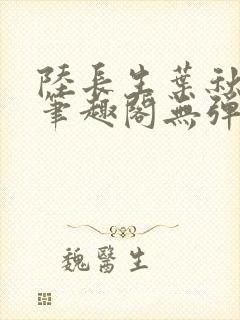 陸長生葉秋
筆趣閣無彈
魏醫生